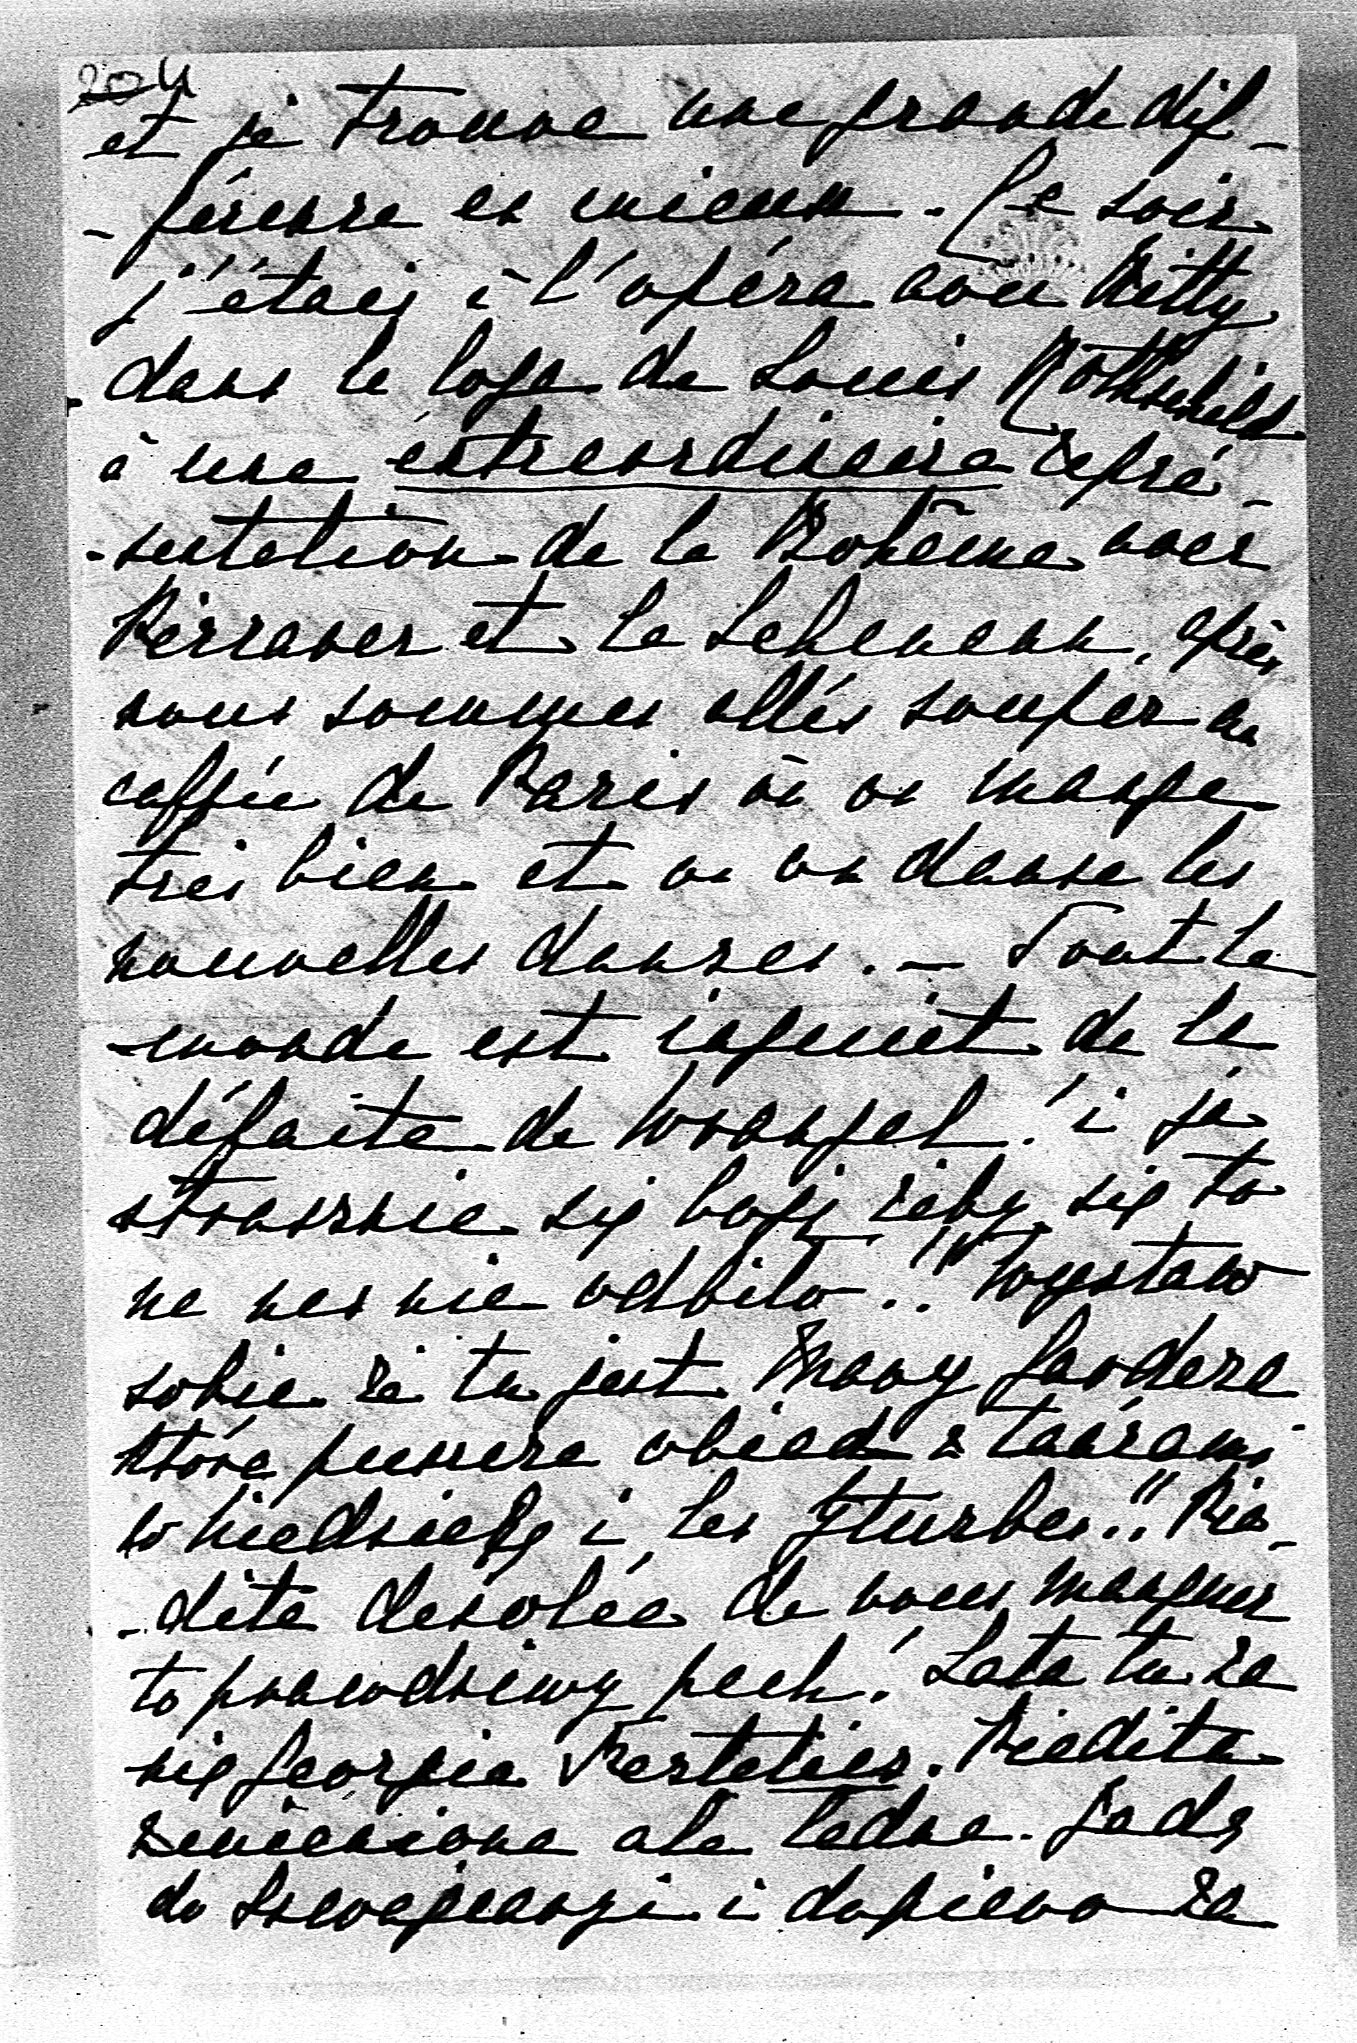 204
et je trouve une grande dif-
-férence en mieux. Ce soir
j'étais à l'opéra avec Kitty
dans la loge de Louis Rothschild
à une extraordinaire repré-
-sentation de la Bohème avec
Piccaver et la Lehmann, après
nous sommes allés souper au
caffée de Paris où on mange
très bien et où on danse les
nouvelles danses. — Tout le
monde est inquiet de la
défaite de Wrangel! i ja
strasznie się boję żeby się to
na nas nie odbiło!! Wystaw
sobie że tu jest
która puszcza obiad z tańcami
w Niedzielę i les Yturbes!! Bie-
-dita désolée de vous manquer
to prawdziwy pech! Lata tu za
nią Georgie. Biedita
zmieniona ale ładna. Jadę
do Szwajcaryi i dopiero za